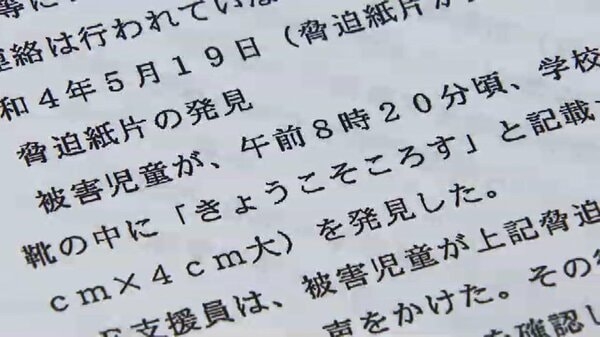 等に
連絡は行われていな
和４年５月１９日（脅迫紙片が
脅迫紙片の発見
被害児童が、午前８時２０分頃、学校
靴の中に「きょうこそころす」と記載
ｃｍ×４ｃｍ大）を発見した。
支援員は、被害児童が上記脅迫
声をかけた。その
を確認し